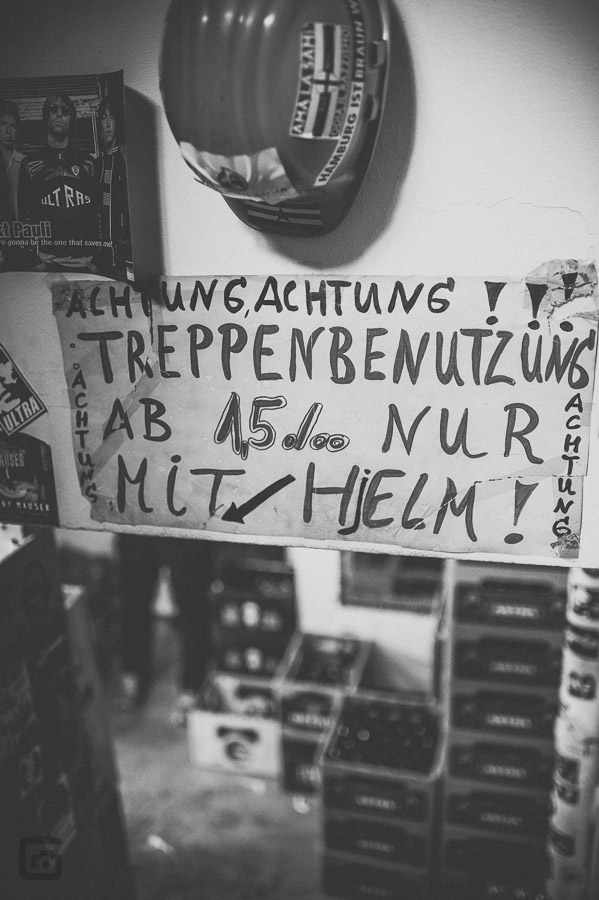 AMA LA SAMB
HAMBURG IST BRAUN W
ULTRAS
Pauli
gonna be the one that saves me!
ACHTUNG, ACHTUNG !!!
TREPPENBENUTZUNG
AB 1,5 o/oo NUR
MiT HjELM !
ACHTUNG
ACHTUNG
ULTRA